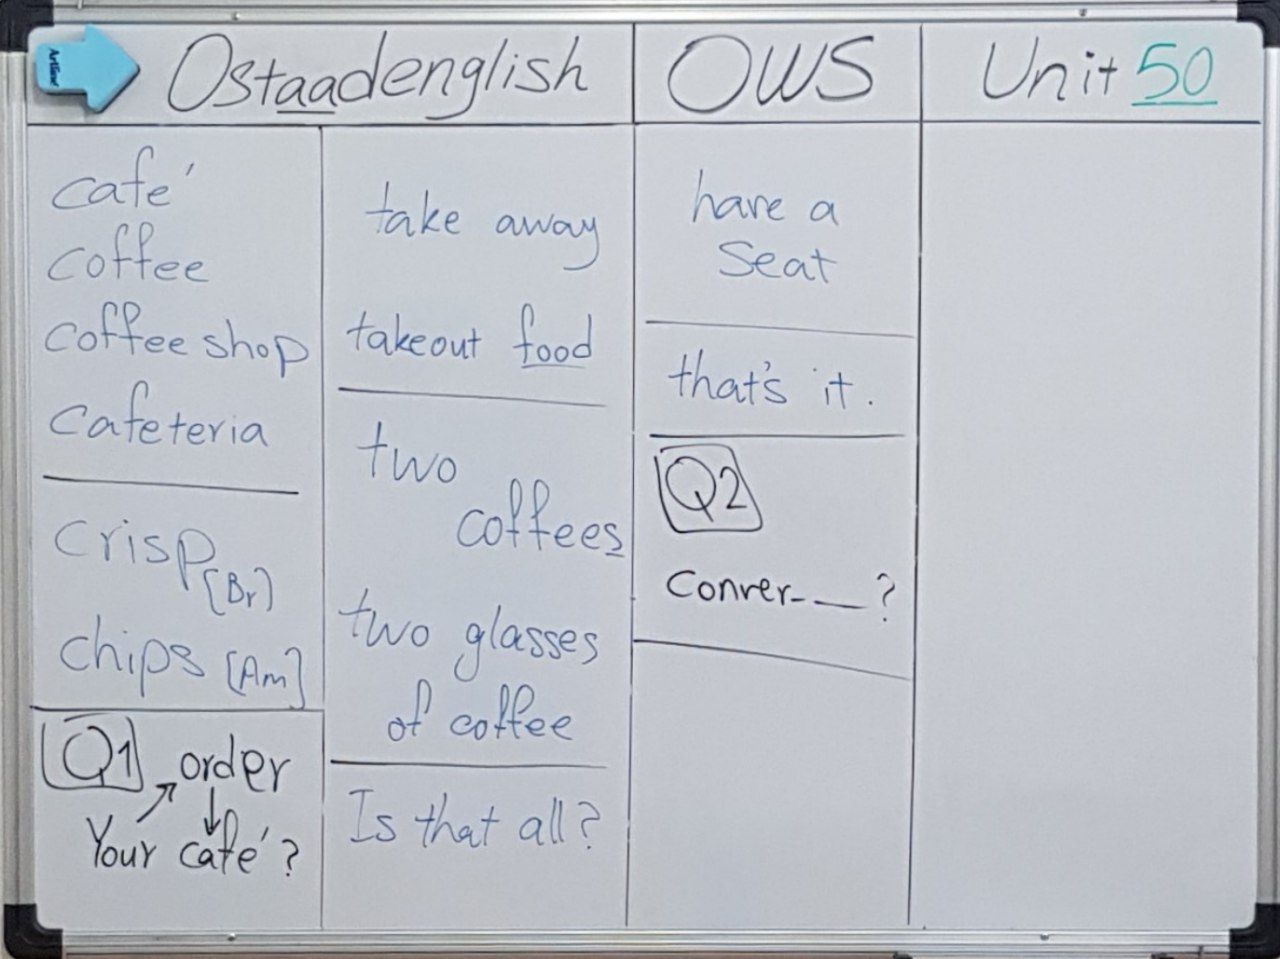 Artline
Ostaadenglish
OWS
Unit 50
café
coffee
coffee shop
cafeteria
crisp [Br]
chips [Am]
Q1 order
Your café?
take away
takeout food
two
coffees
two glasses
of coffee
Is that all?
have a
seat
that's it.
Q2
Conver- __?